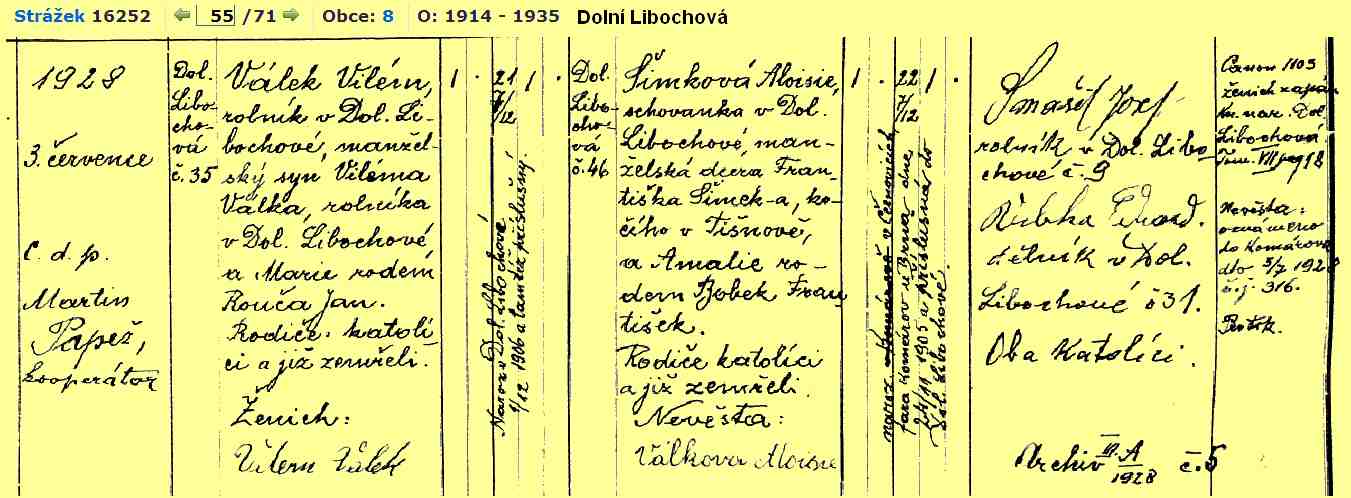 Strážek 16252 55 /71 Obce: 8 O: 1914 - 1935 Dolní Libochová
1928
3. července
C. d. p.
Martin
Papež,
kooperátor
Dol.
Libo-
cho-
vá
č. 35
Válek Vilém,
rolník v Dol. Li-
bochové, manžel-
ský syn Viléma
Válka, rolníka
v Dol. Libochové
a Marie rodem
Rouča Jan.
Rodiče katolí
ci a již zemřeli.
Ženich:
Vilem Válek
1 .
21
7/12
1 .
Naroz. v Dol. Libochové
9/12 1906 a tamtéž příslušný.
Dol.
Libo-
cho-
vá
č. 46
Šimková Aloisie,
schovanka v Dol.
Libochové, man-
želská dcera Fran-
tiška Šimek-a, ko-
čího v Tišnově,
a Amalie ro-
dem Bobek Fran
tišek.
Rodiče katolíci
a již zemřeli.
Nevěsta:
Válkova Aloisie
1 .
22
7/12
1 .
naroz. v Černovicích
fara Komárov u Brna dne
24/11 1905 a příslušná do
Dol. Libochové.
Josef
rolník v Dol. Libo-
chové č. 9
dělník v Dol.
Libochové č 31.
Oba Katolíci.
Archiv III. A/1928 č. 5
Canon 1103
ženich zapsán
kn. nar. Dol.
Libochová
Tom. VII pag 18
Nevěsta:
oznámeno
do Komárova
dto 5/7 1928
č. j. 316.